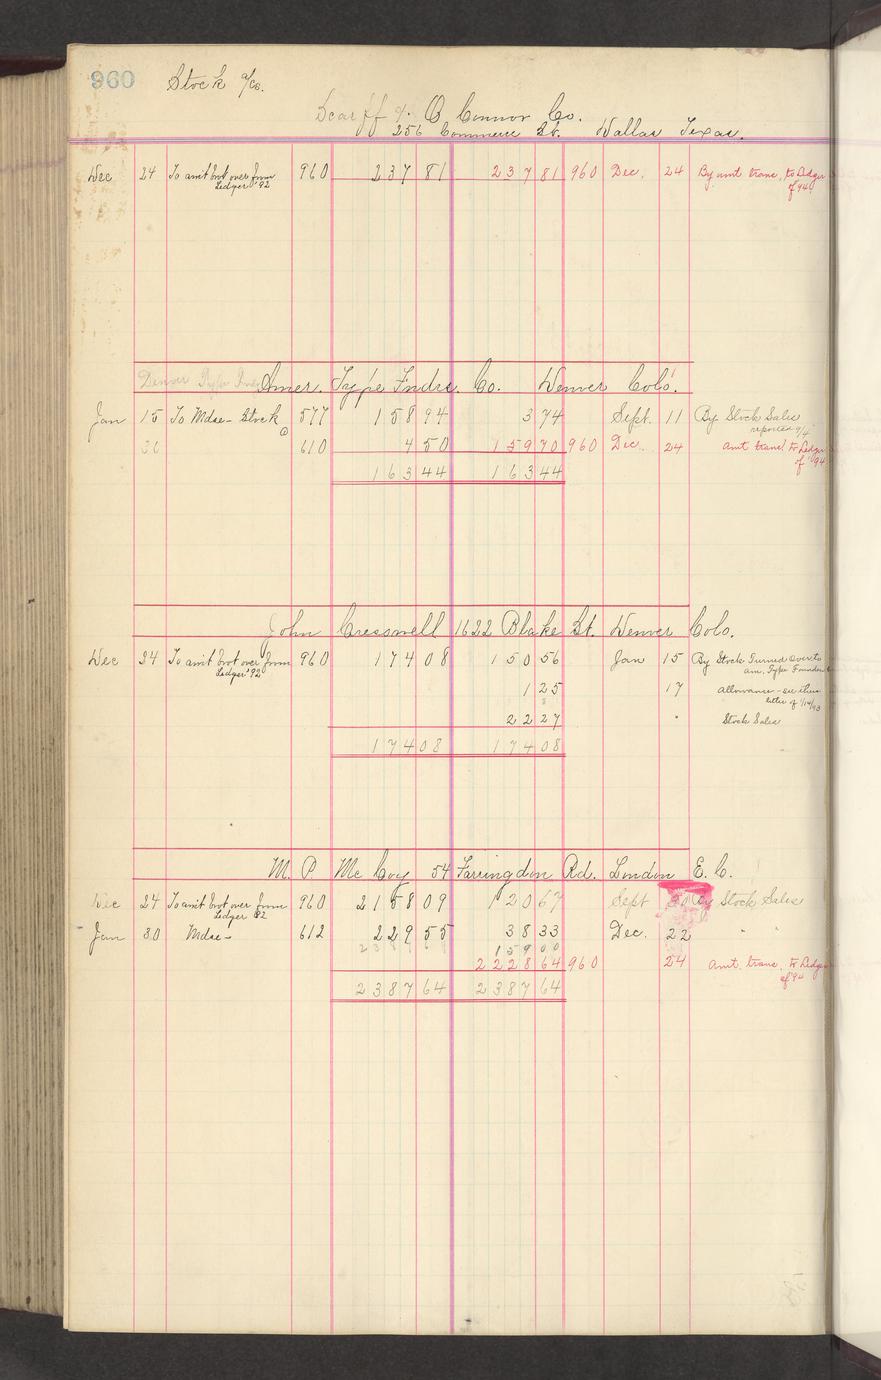 960 Stock a/cs.
Scarff & O Connor Co.
256 Commerce St. Dallas Texas.
Dec 24 To am't brot over from 960 237 81 237 81 960 Dec. 24 By amt trans. to Ledger
Ledger '92 of 94
Denver Type Amer. Type Fndrs. Co. Denver Colo.
Jan 15 To Mdse - Stock 577 158 94 3 74 Sept. 11 By Stock Sales
reported 9/4
30 610 4 50 159 70 960 Dec. 24 amt trans' to Ledger
of '94
163 44 163 44
John Cresswell 1622 Blake St. Denver Colo.
Dec 24 To am't brot over from 960 174 08 150 56 Jan 15 By Stock Turned over to
Ledger '92 am. Type Founders
1 25 17 allowance - see their
letter of 1/14/93
22 27 " Stock Sales
174 08 174 08
M. P. McCoy 54 Farringdon Rd. London E. C.
Dec 24 To am't brot over from 960 2158 09 120 67 Sept 30 By Stock Sales
Ledger 92
Jan 30 Mdse - 612 229 55 38 33 Dec. 22 " "
159 00
2228 64 960 24 amt. trans. to Ledger
of 94
2387 64 2387 64